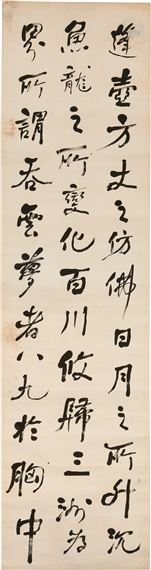 蓬壺方丈之仿佛日月之所升沉
魚龍之所變化百川攸歸三洲為
界所謂吞雲夢者八九於胸中